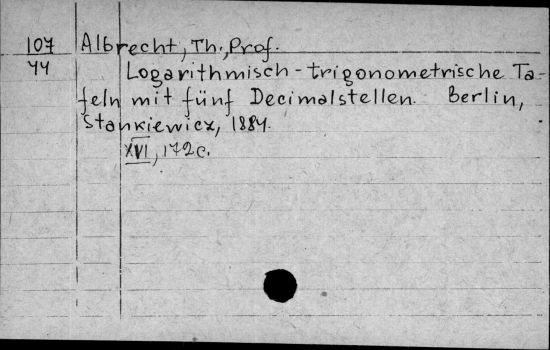 107 Albrecht, Th., Prof.
44 Logarithmisch-trigonometrische Ta-
feln mit fünf Decimalstellen. Berlin,
Stankiewicz, 1884.
XVI, 172 c.